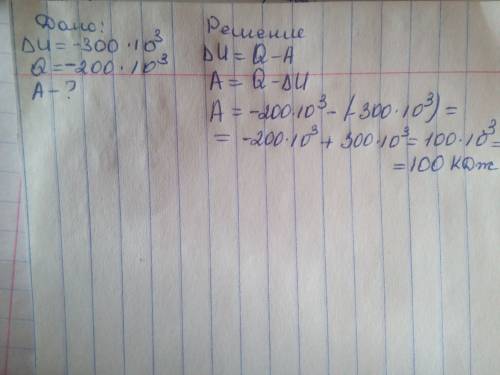 Дано:
ΔU = -300·10³
Q = -200·10³
A - ?
Решение
ΔU = Q - A
A = Q - ΔU
A = -200·10³ - (-300·10³) =
= -200·10³ + 300·10³ = 100·10³ =
= 100 КДж